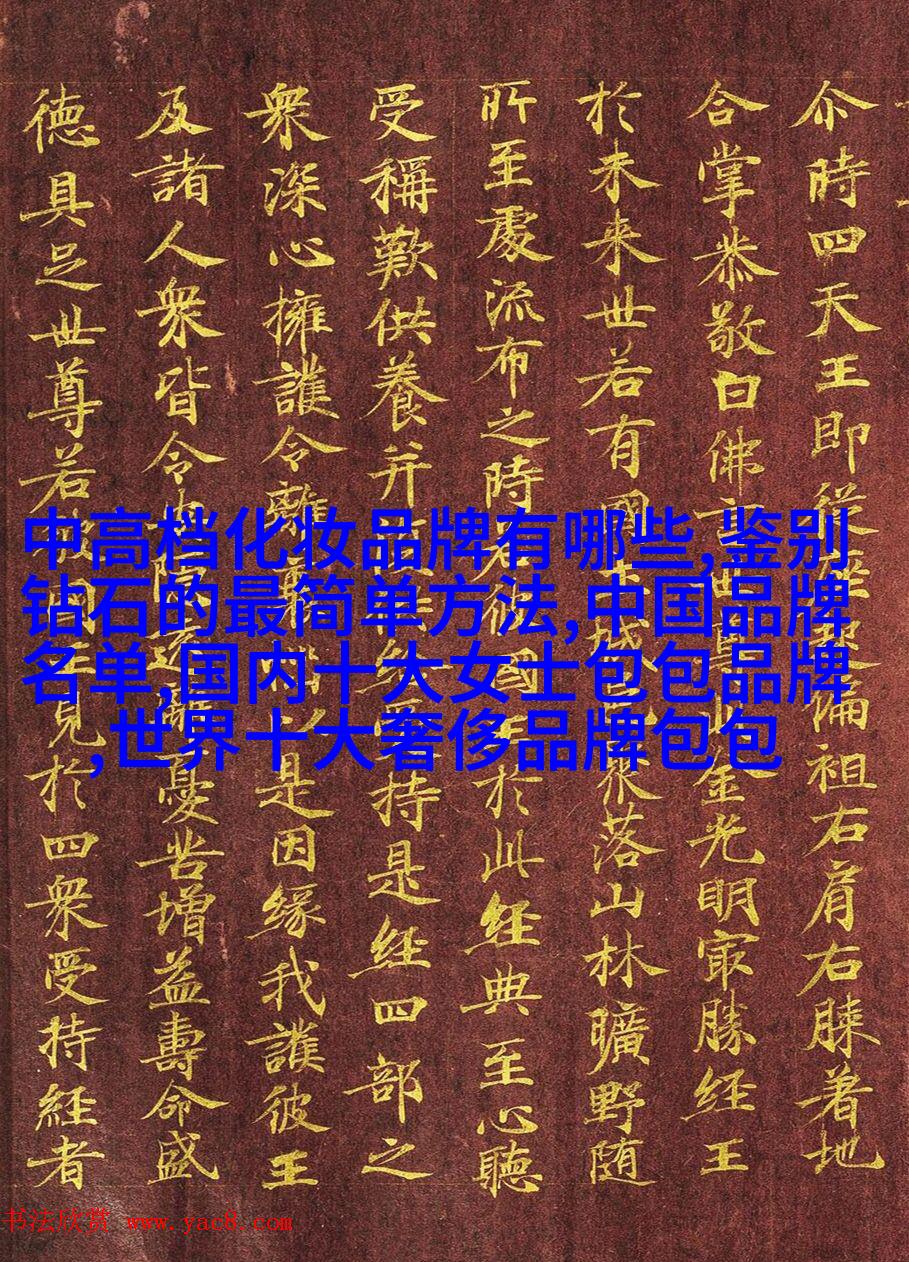 尒時四天王即從座偏袒右肩右膝著地
合掌恭敬白佛世尊金光明最勝經王
於未来世若有國城聚落山林曠野随
所至處流布之時若彼國王於此經典至心聽
受稱歎供養并給受持是經四部之
衆深心擁護令離以是因緣我護彼王
及諸人衆皆令隱遠離憂苦增益壽命盛
徳具足世尊若彼國王見於四衆受持經者
中高档化妆品牌有哪些,鉴别
钻石的最简单方法,中国品牌
名单,国内十大女士包包品牌
,世界十大奢侈品牌包包
书法欣赏 www.yac8.com